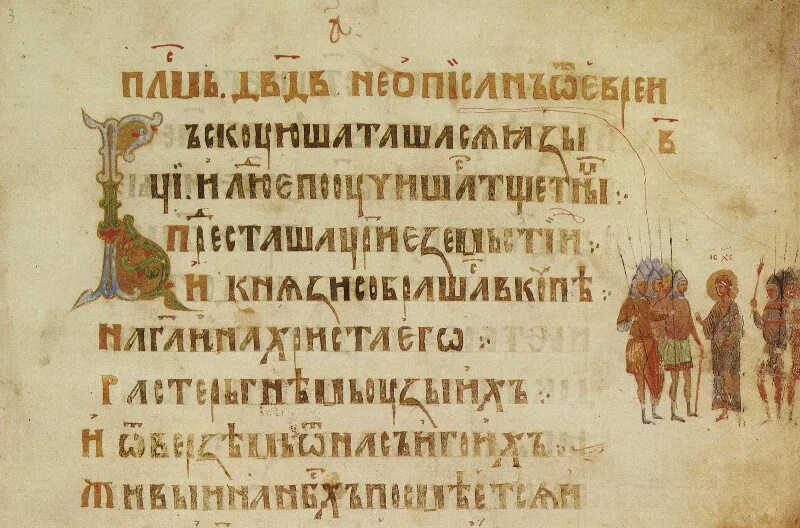 3
а҃
Пⷭ҇лмь. Дв҃дъ неѻпїсанъ ѿ еврѣи
в҃
Въскоую шаташасѧ ꙗзы
ци. и люⷣїе пооучишаⷭ тщетныⷨ :·
Преⷣсташа цр҃їе земьстїи :·
И кнѧзи собрашаⷭ вкоупѣ :·
на га҃ и на христа его :·
Растерьгнѣмь оузы ихъ :·
И ѿверзѣмь ѿ насъ иго ихъ :·
Живыи на нб҃схъ посмѣетсѧ и
ІС ХС